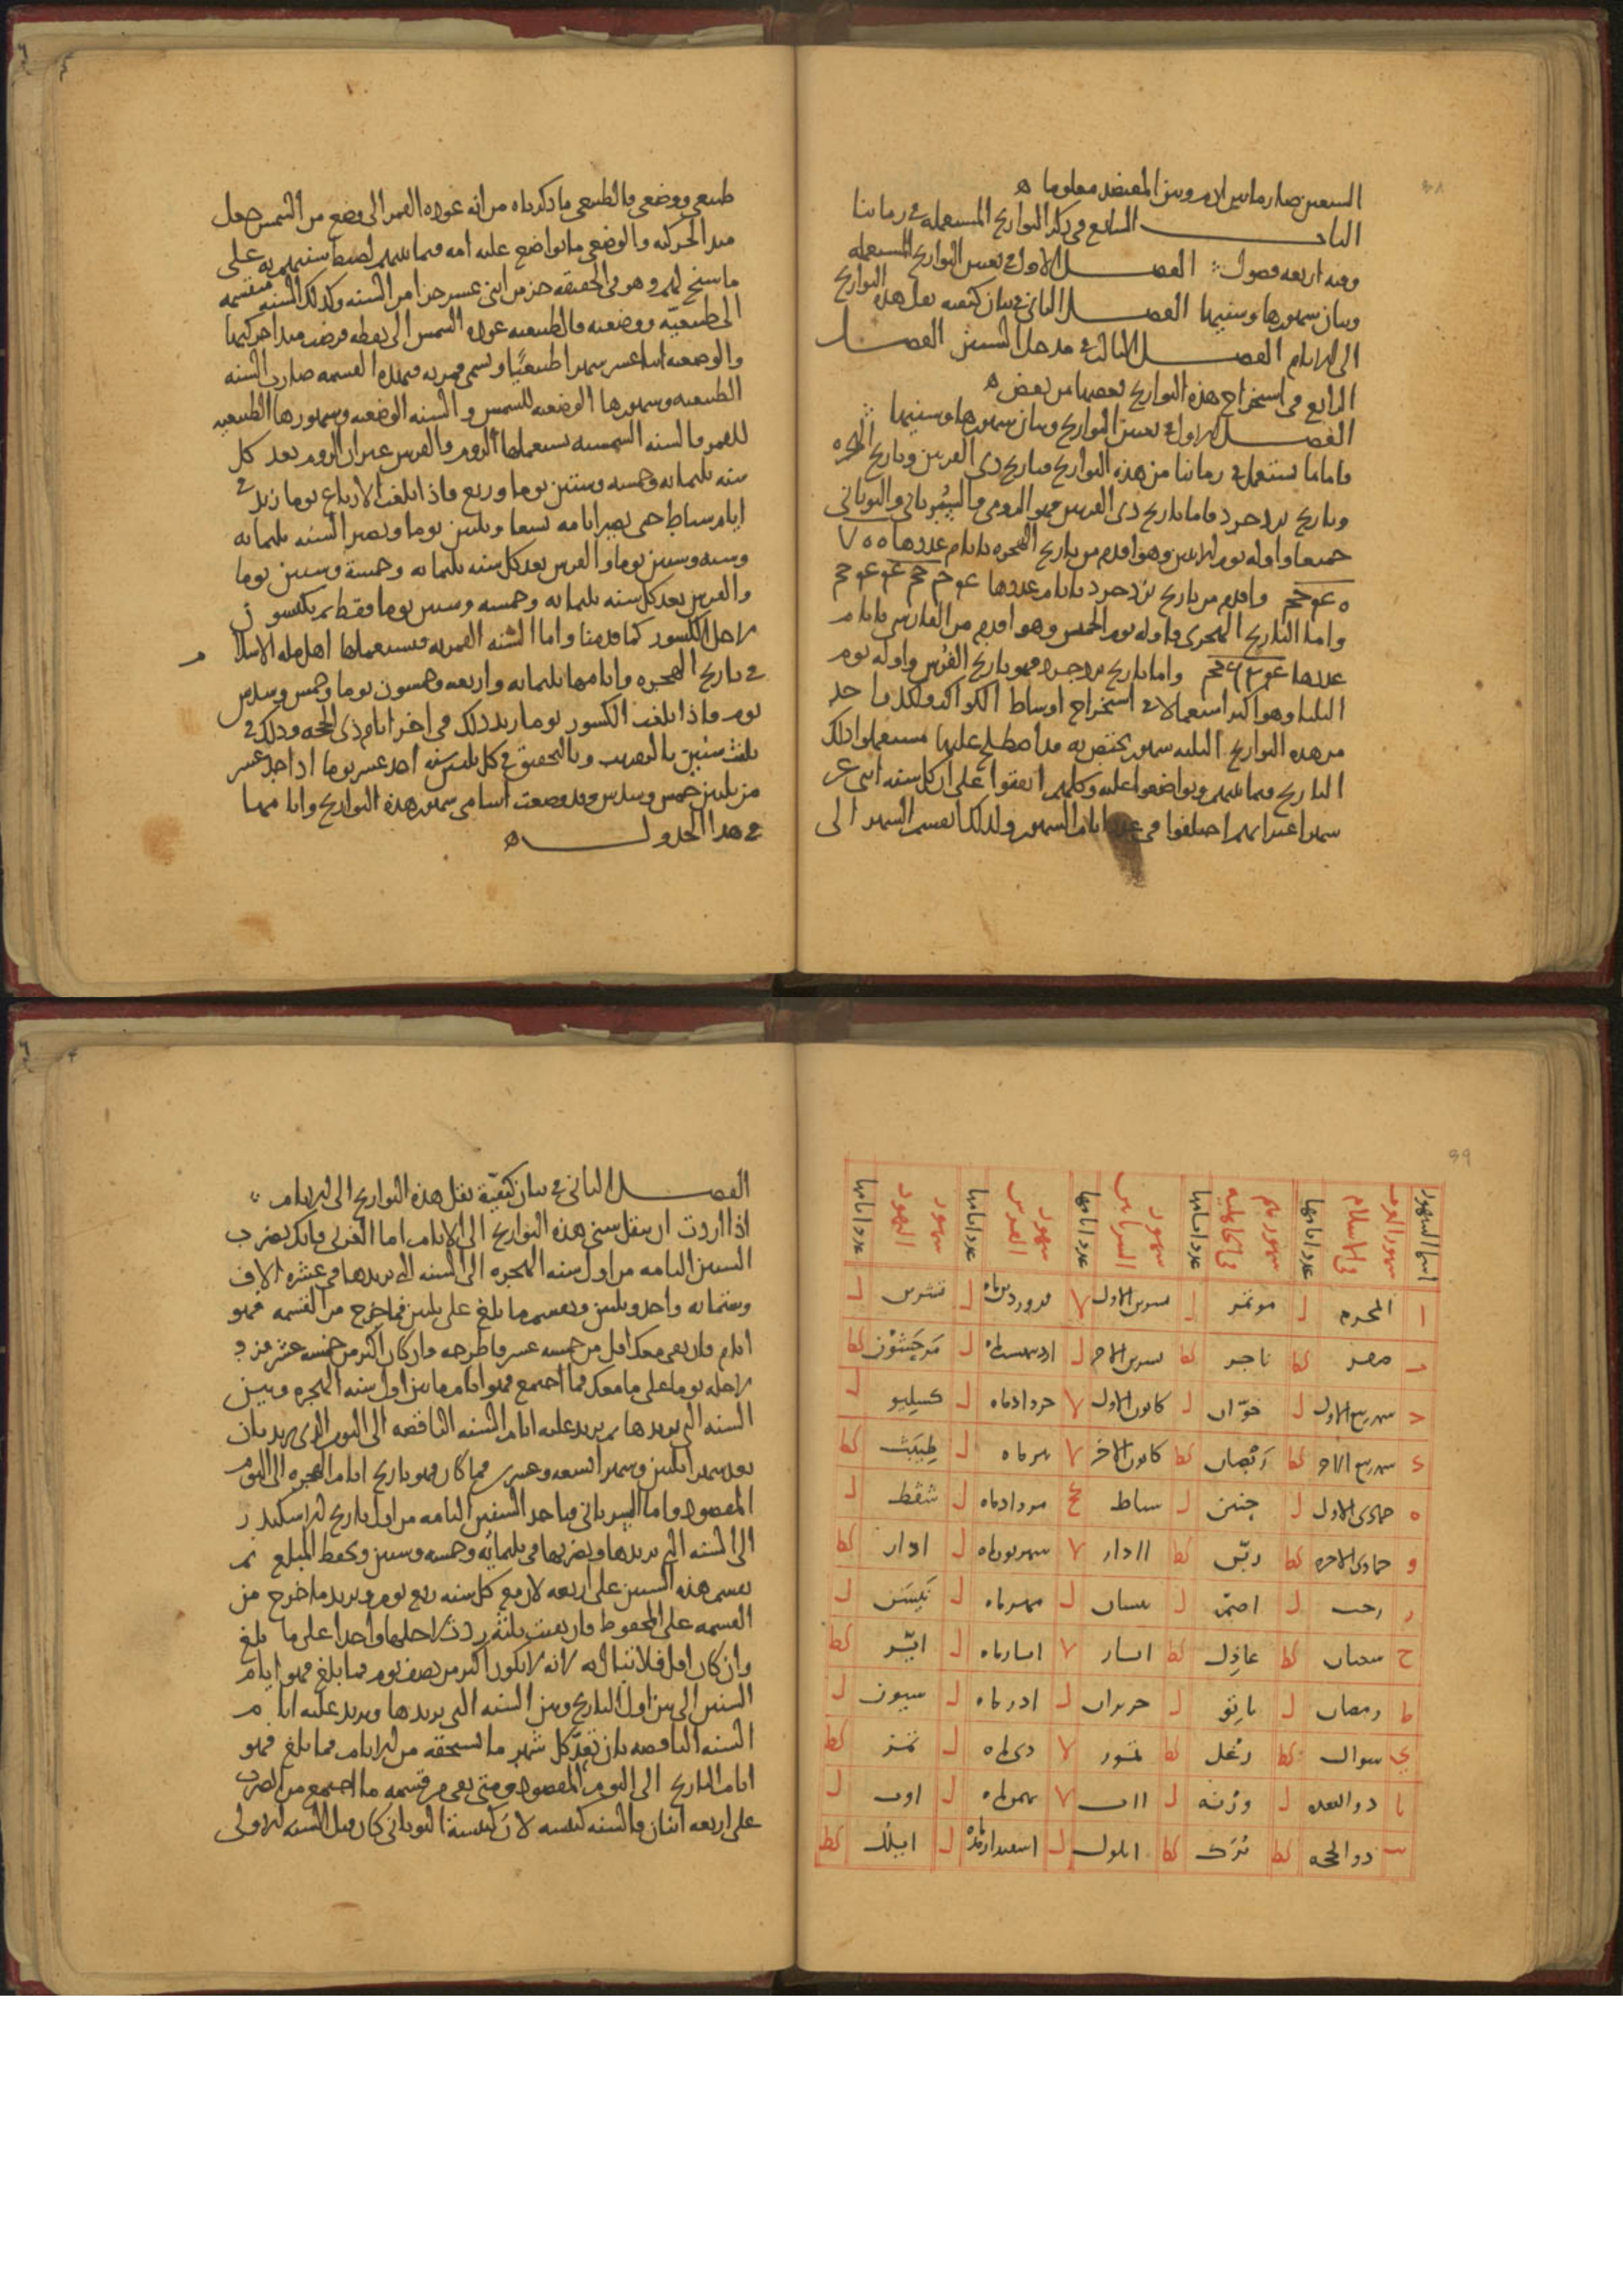 السنين صار ما بين آدم وبين المعتضد معلوما ه
الباب السابع في ذكر التواريخ المستعملة في زماننا
وفيه اربعة فصول الفصل الاول في تعيين التواريخ المستعملة
وبيان شهورها وسنيها الفصل الثاني في بيان كيفية نقل هذه التواريخ
الى الايام الفصل الثالث في مدخل السنين الفصل
الرابع في استخراج هذه التواريخ بعضها من بعض ه
الفصل الاول في تعيين التواريخ وبيان شهورها وسنيها
فاما ما يستعمل في زماننا من هذه التواريخ فتاريخ ذي القرنين وتاريخ الهجرة
وتاريخ يزدجرد فاما تاريخ ذي القرنين فهو الرومي والسرياني واليوناني
جميعا واوله يوم الاثنين وهو اقدم من تاريخ الهجرة بايام عددها
واقدم من تاريخ يزدجرد بايام عددها
واما التاريخ الهجري فاوله يوم الخميس وهو اقدم من الفارسي بايام
عددها واما تاريخ يزدجرد فهو تاريخ الفرس واوله يوم
الثلثا وهو اكثر استعمالا في استخراج اوساط الكواكب ولكل واحد
من هذه التواريخ الثلثة شهور يختص به قد اصطلح عليها مستعملوا ذلك
التاريخ فيما بينهم وتواضعوا عليه وكلهم اتفقوا على ان كل سنة اثنى عشر
شهرا غير انهم اختلفوا في عدد ايام الشهور ولذلك انقسم الشهر الى
طبيعي ووضعي فالطبيعي ما ذكرناه من انه عودة القمر الى وضع من الشمس جعل
مبدا الحركة والوضعي ما تواضع عليه امة فيما بينهم لضبط سنيهم به على
ما سنح لهم وهو في الحقيقة جز من اثنى عشر جزا من السنة وكذلك السنة منقسمة
الى طبيعية ووضعية فالطبيعية عودة الشمس الى نقطة فرضت مبدا حركتها
والوضعية اثنا عشر شهرا طبيعيا وتسمى قمرية فبهذه القسمة صارت السنة
الطبيعية وشهورها الوضعية للشمس والسنة الوضعية وشهورها الطبيعية
للقمر فالسنة الشمسية يستعملها الروم والفرس غير ان الروم تعد كل
سنة ثلثمائة وخمسة وستين يوما وربع فاذا بلغت الارباع يوما زيد في
ايام سباط حتى يصير ايامه تسعا وعشرين يوما وتصير السنة ثلثمائة
وستة وستين يوما والفرس تعد كل سنة ثلثمائة وخمسة وستين يوما
والفرس تعد كل سنة ثلثمائة وخمسة وستين يوما فقط ثم يكبسون
لاجل الكسور كما قدمنا واما السنة القمرية فيستعملها اهل ملة الاسلام
في تاريخ الهجرة وايامها ثلثمائة واربعة وخمسون يوما وخمس وسدس
يوم فاذا بلغت الكسور يوما زيد ذلك في اخر ايام ذي الحجة وذلك في
ثلث سنين بالتقريب وبالتحقيق في كل ثلثين سنة احد عشر يوما اذ احد عشر
من ثلثين خمس وسدس وقد وضعت اسامي شهور هذه التواريخ وايامها
في هذا الجدول ه
اسما الشهور | شهور العرب في الاسلام | عدد ايامها | شهورهم في الجاهلية | عدد ايامها | شهور السريانيين | عدد ايامها | شهور الفرس | عدد ايامها | شهور اليهود | عدد ايامها
ا المحرم ل موتمر ل تشرين الاول لا فروردين ماه ل تشرين ل
ب صفر كط ناجر كط تشرين الاخر ل ارديبهشت ماه ل مرحشون كط
ج شهر ربيع الاول ل خوان ل كانون الاول لا خرداد ماه ل كسليو ل
د شهر ربيع الاخر كط وبصان كط كانون الاخر لا تير ماه ل طيبث كط
ه جمادى الاول ل حنين ل سباط كح مرداد ماه ل شفط ل
و جمادى الاخرة كط ربى كط اادار لا شهرير ماه ل ادار كط
ز رجب ل اصم ل نيسان ل مهر ماه ل نيسن ل
ح شعبان كط عاذل كط ايار لا ابان ماه ل اير كط
ط رمضان ل ناتق ل حزيران ل اذر ماه ل سيون ل
ي شوال كط وعل كط تموز لا دى ماه ل تمز كط
يا ذو القعدة ل ورنه ل ااب لا بهمن ماه ل اوب ل
يب ذو الحجة كط برك كط ايلول ل اسفندارمذ ل ايلل كط
الفصل الثاني في بيان كيفية نقل هذه التواريخ الى الايام
اذا اردت ان تنقل سني هذه التواريخ الى الايام اما العربي فانك تضرب
السنين التامة من اول سنة الهجرة الى السنة التي تريدها في عشرة الاف
وستمائة واحد وثلثين وتقسم ما بلغ على ثلثين فما خرج من القسمة فهو
ايام فان بقي معك اقل من خمسة عشر فاطرحه وان كان اكثر من خمسة عشر فزد
لاجله يوما على ما معك فما اجتمع فهو ايام ما بين اول سنة الهجرة وبين
السنة التي تريدها ثم يزيد عليه ايام السنة الناقصة الى اليوم الذي تريد بان
تعد شهرا ثلثين وشهرا تسعة وعشرين فما كان فهو تاريخ ايام الهجرة الى اليوم
المقصود واما السرياني فياخذ السنين التامة من اول تاريخ الاسكندر
الى السنة التي تريدها ويضربها في ثلثمائة وخمسة وستين ويحفظ المبلغ ثم
يقسم هذه السنين على اربعة لان مع كل سنة ربع يوم ويزيد ما خرج من
القسمة على المحفوظ فان بقيت ثلثة زدت لاجلها واحدا على ما بلغ
وان كان اقل فلا تبال به لانه لا يكون اكثر من نصف يوم فما بلغ فهو ايام
السنين التي بين اول التاريخ وبين السنة التي تريدها ويزيد عليه ايام
السنة الناقصة بان تعد كل شهر ما يستحقه من الايام فما بلغ فهو
ايام التاريخ الى اليوم المقصود ومتى بقي من قسمة ما اجتمع من الضرب
على اربعة اثنان فالسنة كبيسة لان كبيسة اليوناني كان قبل السنة الاولى